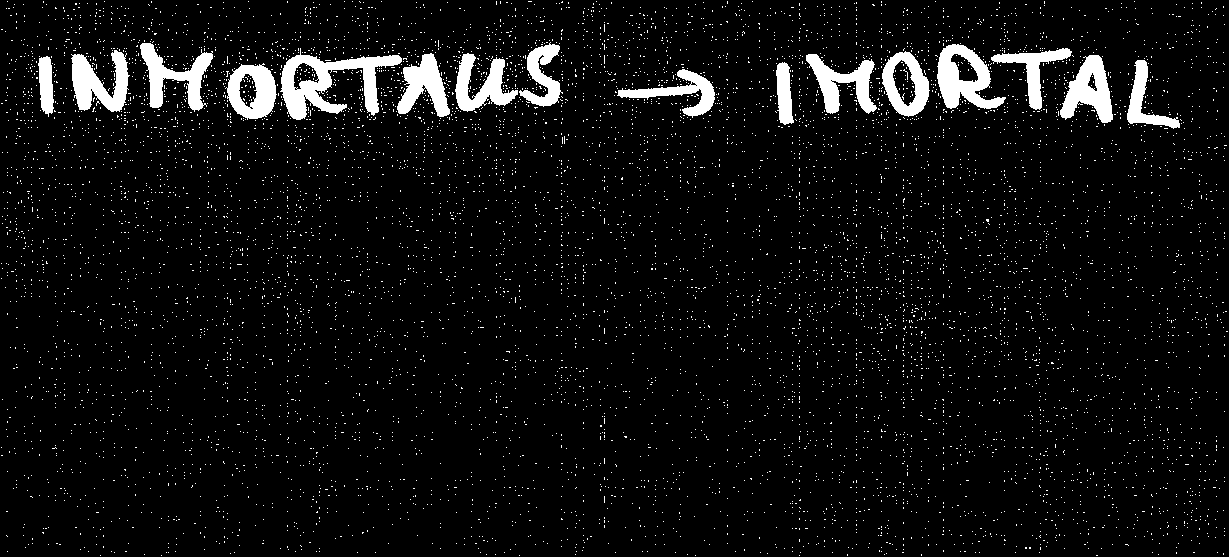 INMORTALIS → IMORTAL